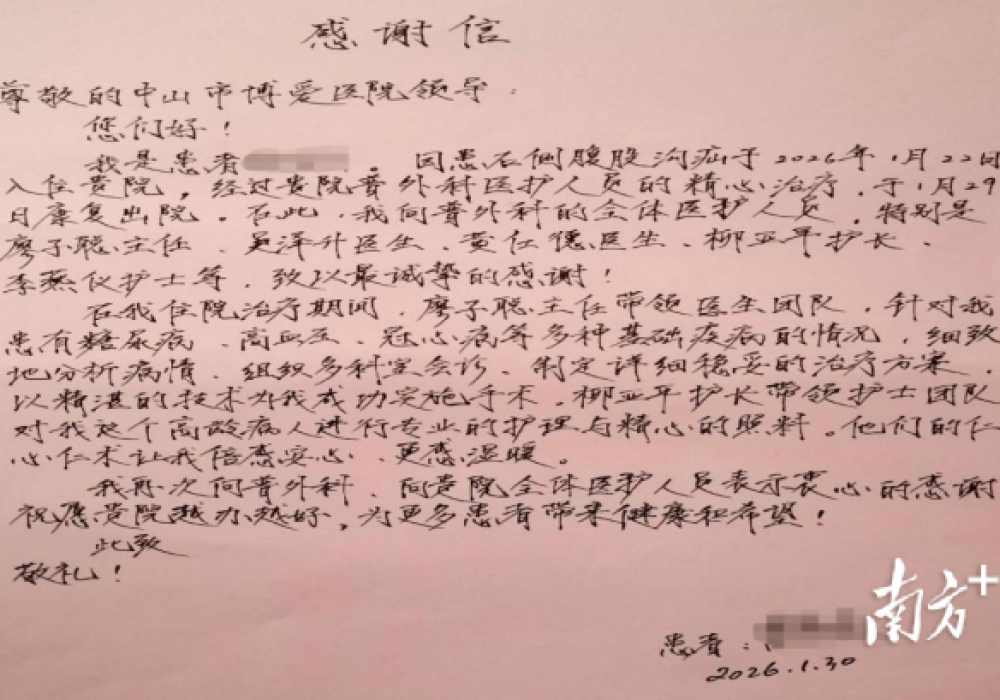 感谢信
尊敬的中山市博爱医院领导：
您们好！
我是患者 。因患右侧腹股沟疝于2026年1月22日
入住贵院，经过贵院普外科医护人员的精心治疗，于1月29
日康复出院。在此，我向普外科的全体医护人员，特别是
廖子聪主任、吴泽升医生、黄仁德医生、柳亚平护长、
李燕仪护士等，致以最诚挚的感谢！
在我住院治疗期间，廖子聪主任带领医生团队，针对我
患有糖尿病、高血压、冠心病等多种基础疾病的情况，细致
地分析病情、组织多科室会诊、制定详细稳妥的治疗方案，
以精湛的技术为我成功实施手术。柳亚平护长带领护士团队
对我这个高龄病人进行专业的护理与精心的照料。他们的仁
心仁术让我倍感安心、更感温暖。
我再次向普外科、向贵院全体医护人员表示衷心的感谢
祝愿贵院越办越好，为更多患者带来健康和希望！
此致
敬礼！
患者：
2026.1.30
南方+